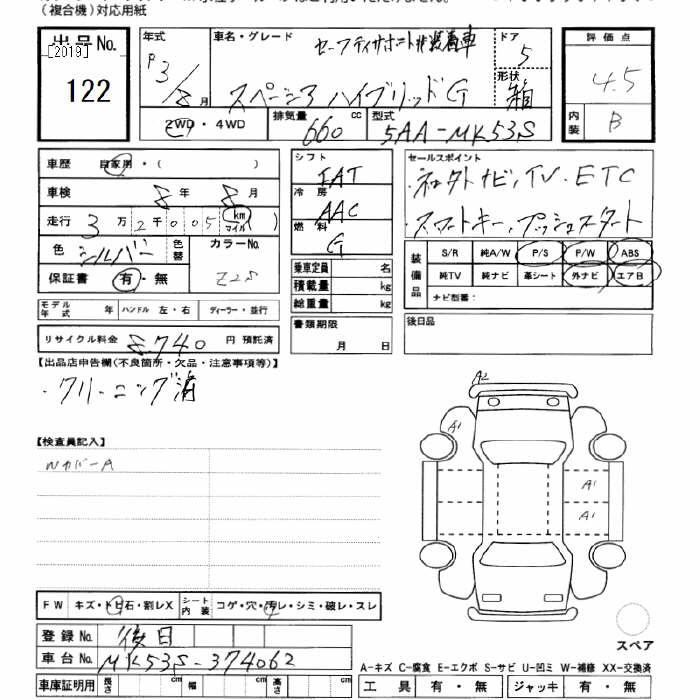 (複合機)対応用紙
出品No. [2019] 122
年式 R3/8月
車名・グレード セーフティサポート非装着車
スペーシア ハイブリッドG
ドア 5
形状 箱
評価点 4.5
内装 B
2WD・4WD 排気量 660 cc 型式 5AA-MK53S
車歴 自家用・( )
車検 8年 8月
走行 3万2千005 (km マイル)
色 シルバー 色替 カラーNo. Z2S
保証書 有・無
モデル年式 年 ハンドル 左・右 ディーラー・並行
リサイクル料金 8740 円 預託済
シフト IAT
冷房 AAC
燃料 G
乗車定員 名
積載量 kg
総重量 kg
書類期限 月 日
セールスポイント
・ネオタトナビ, TV・ETC
・スマートキー, プッシュスタート
装備品 S/R 純A/W P/S P/W ABS
純TV 純ナビ 革シート 外ナビ エアB
ナビ型番:
後日品
【出品店申告欄(不良箇所・欠品・注意事項等)】
・クリーニング済
【検査員記入】
WカバーA
A2
A1
A1
A1
FW キズ・トビ石・割レX シート内装 コゲ・穴・汚レ・シミ・破レ・スレ
登録No. 後日
車台No. MK53S-374062
車庫証明用 長さ cm 幅 cm 高さ cm
スペア
A-キズ C-腐食 E-エクボ S-サビ U-凹ミ W-補修 XX-交換済
工具 有・無 ジャッキ 有・無